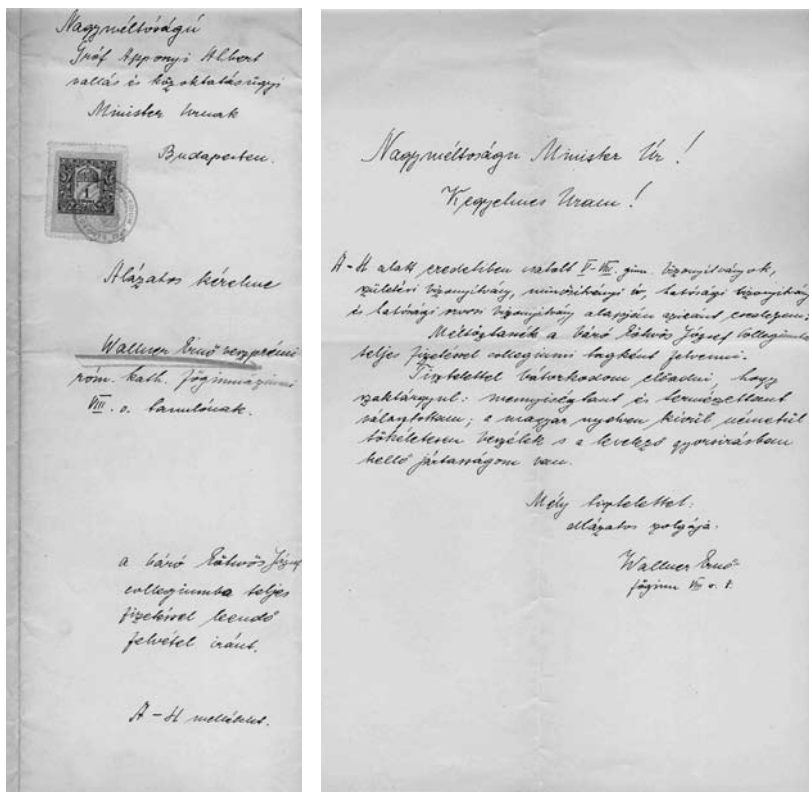 Nagyméltóságú
Gróf Apponyi Albert
vallás és közoktatásügyi
Minister Urnak
Budapesten.
1
Alázatos kérelme
Wallner Ernő veszprémi
róm. kath. főgimnáziumi
VIII. o. tanulónak.
a báró Eötvös József
collegiumba teljes
fizetéssel leendő
felvétel iránt.
A-H melléklet.
Nagyméltóságu Minister Úr!
Kegyelmes Uram!
A-H alatt eredetiben csatolt V-VIII. gim. bizonyitványok,
születési bizonyitvány, minősitvényi ív, hatósági bizonyitvány
és hatósági orvosi bizonyitvány alapján aziránt esedezem:
Méltóztassék a báró Eötvös József collegiumba
teljes fizetéssel collegiumi tagként felvenni.
Tisztelettel bátorkodom előadni, hogy
szaktárgyul: mennyiségtant és természettant
választottam; a magyar nyelven kivül németül
tökéletesen beszélek s a levelező gyorsirásban
kellő jártasságom van.
Mély tisztelettel:
alázatos szolgája.
Wallner Ernő
főgimn VIII o. t.